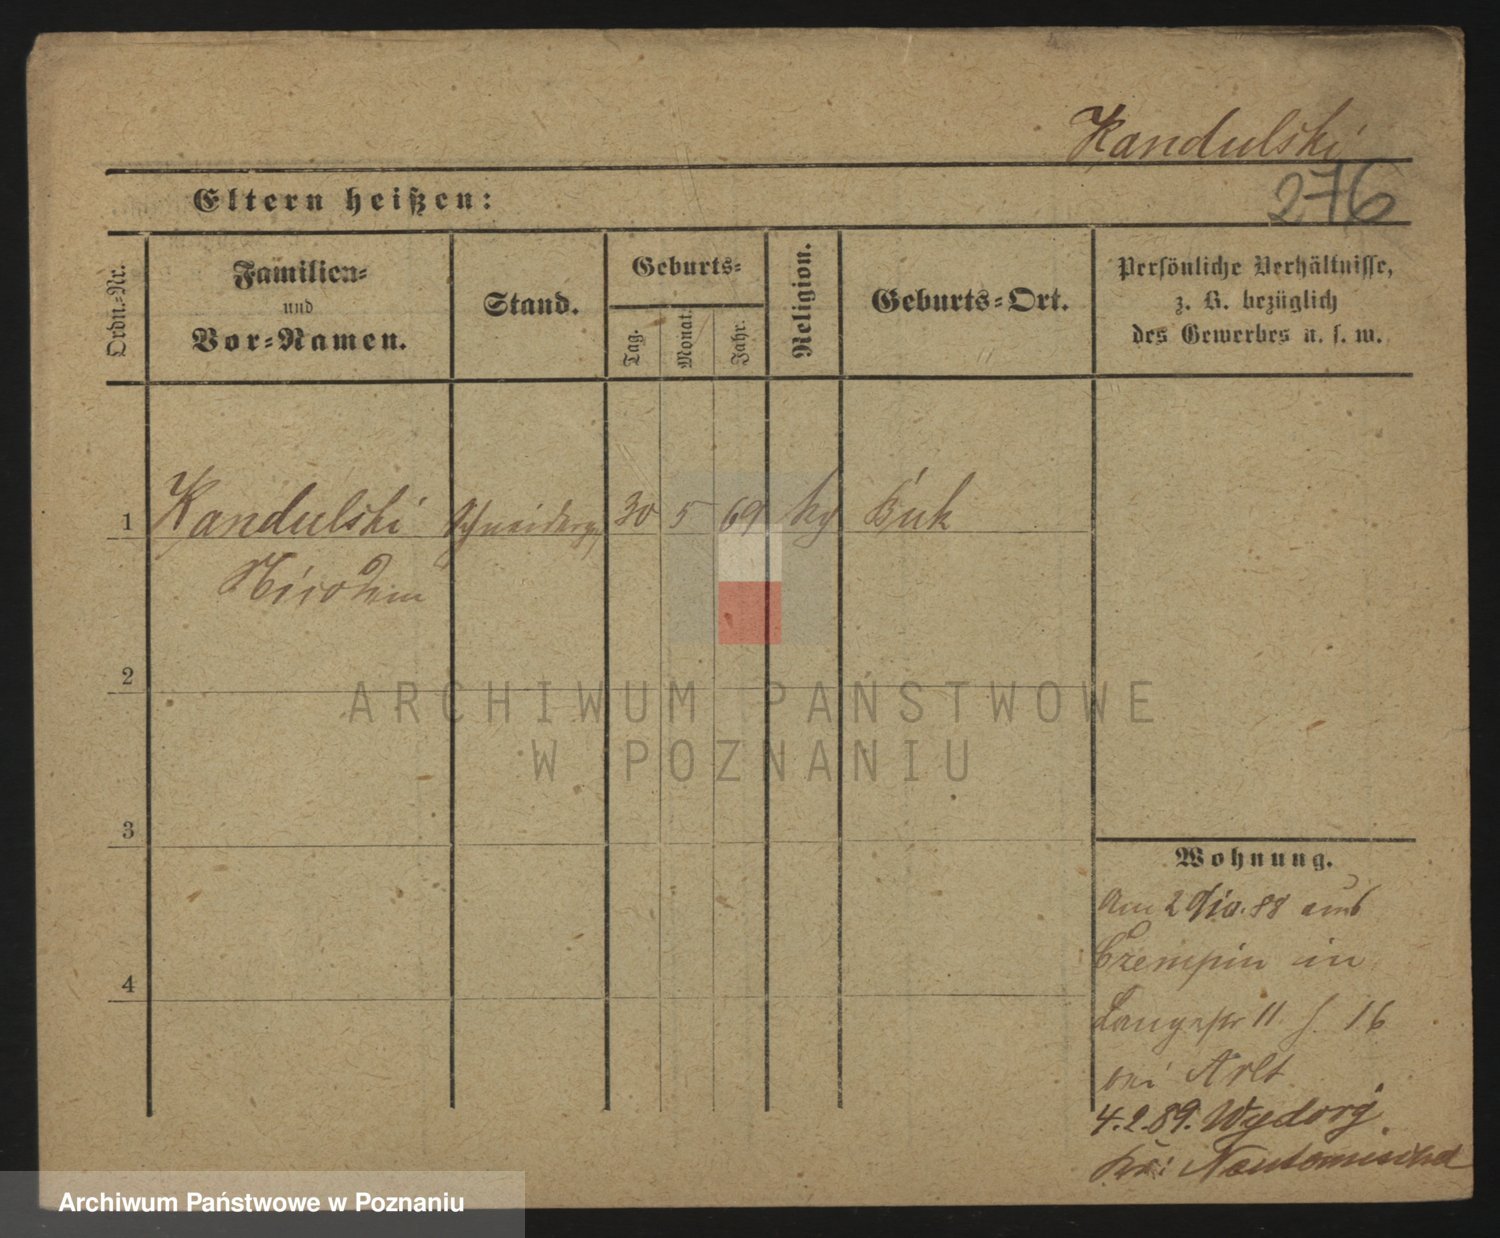 Kandulski
276
Eltern heißen:
Ordn.-Nr.
Familien-
und
Vor-Namen.
Stand.
Geburts-
Tag.
Monat.
Jahr.
Religion.
Geburts-Ort.
Persönliche Verhältnisse,
z. B. bezüglich
des Gewerbes u. s. w.
1 Kandulski Schneiderg. 30 5 69 Buk
Nicodem
2
3
4
Wohnung.
Am 2 88 aus
Czempin in
Langestr 11 16
bei Arlt
4.2.89.
ARCHIWUM PAŃSTWOWE
W POZNANIU
Archiwum Państwowe w Poznaniu